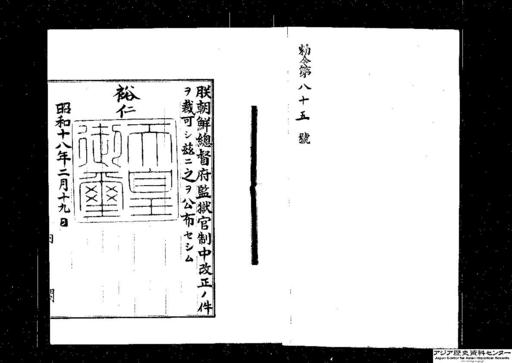 勅令第八十五號
朕朝鮮總督府監獄官制中改正ノ件
ヲ裁可シ茲ニ之ヲ公布セシム
裕仁
天皇御璽
昭和十八年二月十九日
アジア歴史資料センター
Japan Center for Asian Historical Records